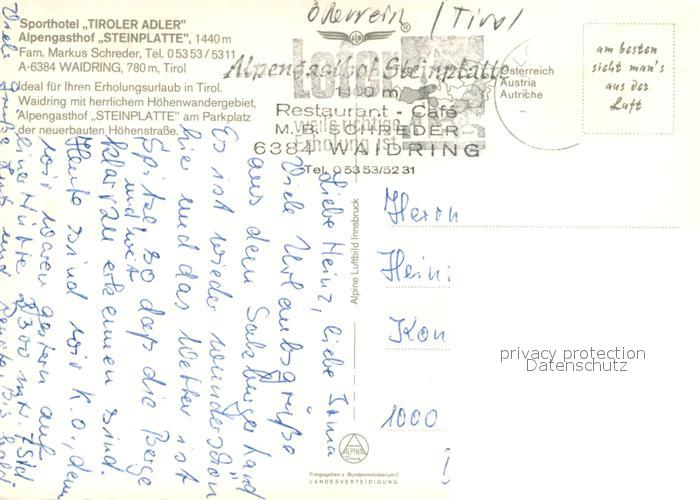 Sporthotel „TIROLER ADLER"
Alpengasthof „STEINPLATTE", 1440 m
Fam. Markus Schreder, Tel. 0 53 53 / 5311
A-6384 WAIDRING, 780 m, Tirol
Ideal für Ihren Erholungsurlaub in Tirol.
Waidring mit herrlichem Höhenwandergebiet,
Alpengasthof „STEINPLATTE" am Parkplatz
der neuerbauten Höhenstraße.
/ Tirol
Alpengasthof Steinplatte
1400 m
Restaurant - Café
M. B. SCHREDER
6384 WAIDRING
Tel. 0 53 53/52 31
Österreich
Austria
Autriche
am besten
sieht man's
aus der
Luft
Liebe Heinz, liebe Irma
Viele Urlaubsgrüße
aus dem Salzburger Land
Es ist wieder wunderschön
hier und das Wetter ist
Spitze so daß die Berge
und weit
klar zu erkennen sind.
Heute sind wir K.O., denn
wir waren gestern auf
einer Hütte 2300 m.
Viele Grüße
Alpine Luftbild Innsbruck
Herrn
Hein
Kon
1000
privacy protection
Datenschutz
ALPINA
Freigegeben v. Bundesministerium f.
LANDESVERTEIDIGUNG